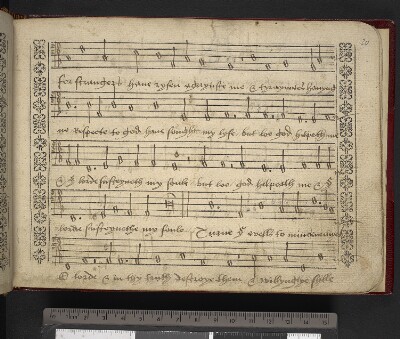 for strangers have rysen agaynste me & tyrauntes havynge
no respecte to god have sought my lyfe but loo god helpethe me
& ye lorde susteyneth my soule but loo god helpeth me & ye
lorde susteynethe my soule Turne ye evells to myne enemyes
O lorde & in thy truth destroye them & wyllyngly